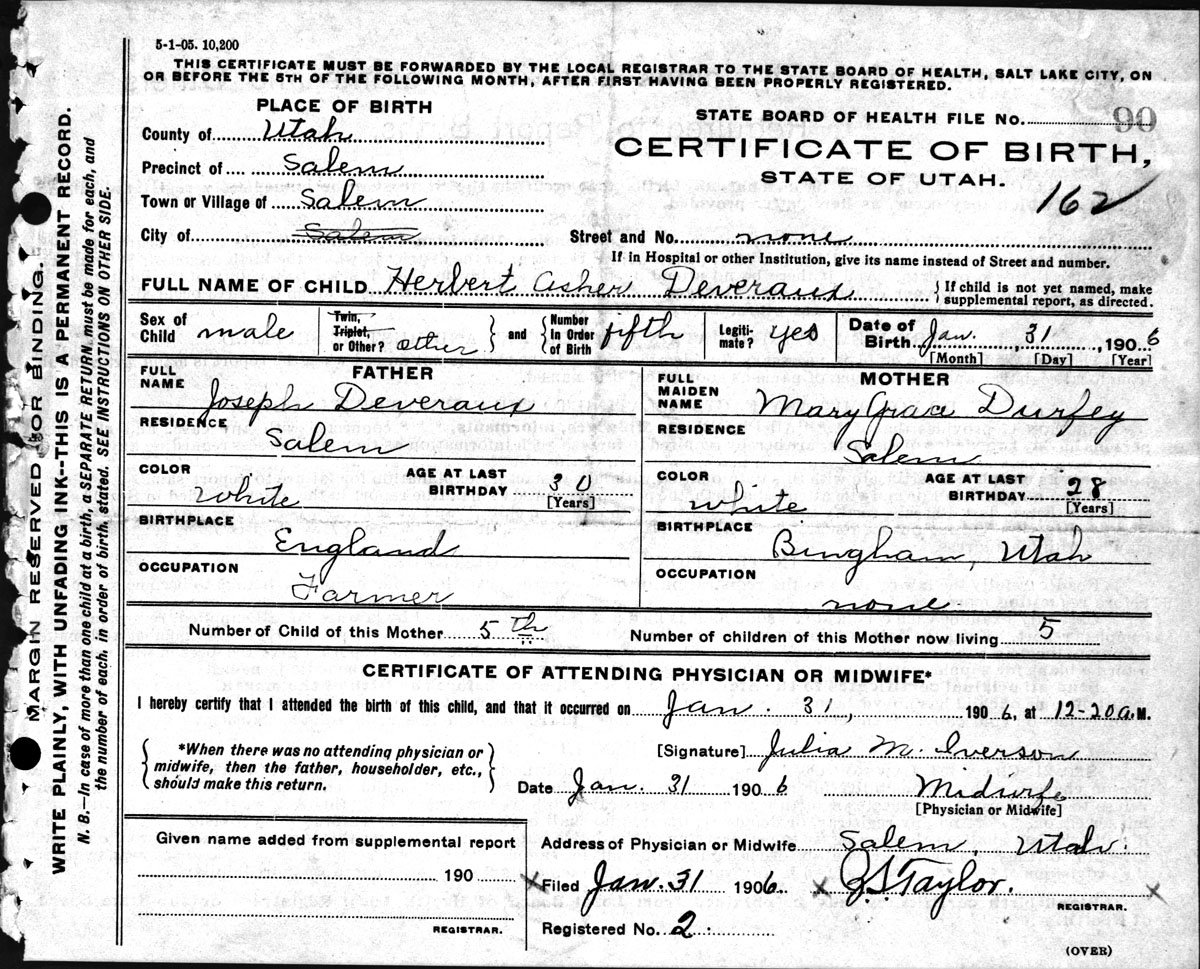 5-1-05. 10,200
THIS CERTIFICATE MUST BE FORWARDED BY THE LOCAL REGISTRAR TO THE STATE BOARD OF HEALTH, SALT LAKE CITY, ON
OR BEFORE THE 5TH OF THE FOLLOWING MONTH, AFTER FIRST HAVING BEEN PROPERLY REGISTERED.
MARGIN RESERVED FOR BINDING.
WRITE PLAINLY, WITH UNFADING INK--THIS IS A PERMANENT RECORD.
N. B.—In case of more than one child at a birth, a SEPARATE RETURN must be made for each, and
the number of each, in order of birth, stated. SEE INSTRUCTIONS ON OTHER SIDE.
PLACE OF BIRTH
County of Utah
Precinct of Salem
Town or Village of Salem
City of Salem
STATE BOARD OF HEALTH FILE No. 90
CERTIFICATE OF BIRTH,
STATE OF UTAH.
162
Street and No. none
If in Hospital or other Institution, give its name instead of Street and number.
FULL NAME OF CHILD Herbert Asher Deveraux { If child is not yet named, make
supplemental report, as directed.
Sex of Child male Twin, Triplet, or Other? other and Number In Order of Birth fifth Legiti- mate? yes Date of Birth Jan. 31, 1906
[Month] [Day] [Year]
FATHER
FULL NAME Joseph Deveraux
RESIDENCE Salem
COLOR White AGE AT LAST BIRTHDAY 30 [Years]
BIRTHPLACE England
OCCUPATION Farmer
MOTHER
FULL MAIDEN NAME Mary Grace Durfey
RESIDENCE Salem
COLOR white AGE AT LAST BIRTHDAY 28 [Years]
BIRTHPLACE Bingham, Utah
OCCUPATION none
Number of Child of this Mother 5th Number of children of this Mother now living 5
CERTIFICATE OF ATTENDING PHYSICIAN OR MIDWIFE*
I hereby certify that I attended the birth of this child, and that it occurred on Jan. 31, 1906, at 12-20 a.M.
{ *When there was no attending physician or
midwife, then the father, householder, etc.,
should make this return. }
[Signature] Julia M. Iverson
Date Jan. 31 1906 Midwife
[Physician or Midwife]
Given name added from supplemental report
190
REGISTRAR.
Address of Physician or Midwife Salem, Utah.
x Filed Jan. 31 1906. x J S Taylor. x
REGISTRAR.
Registered No. 2.
(OVER)